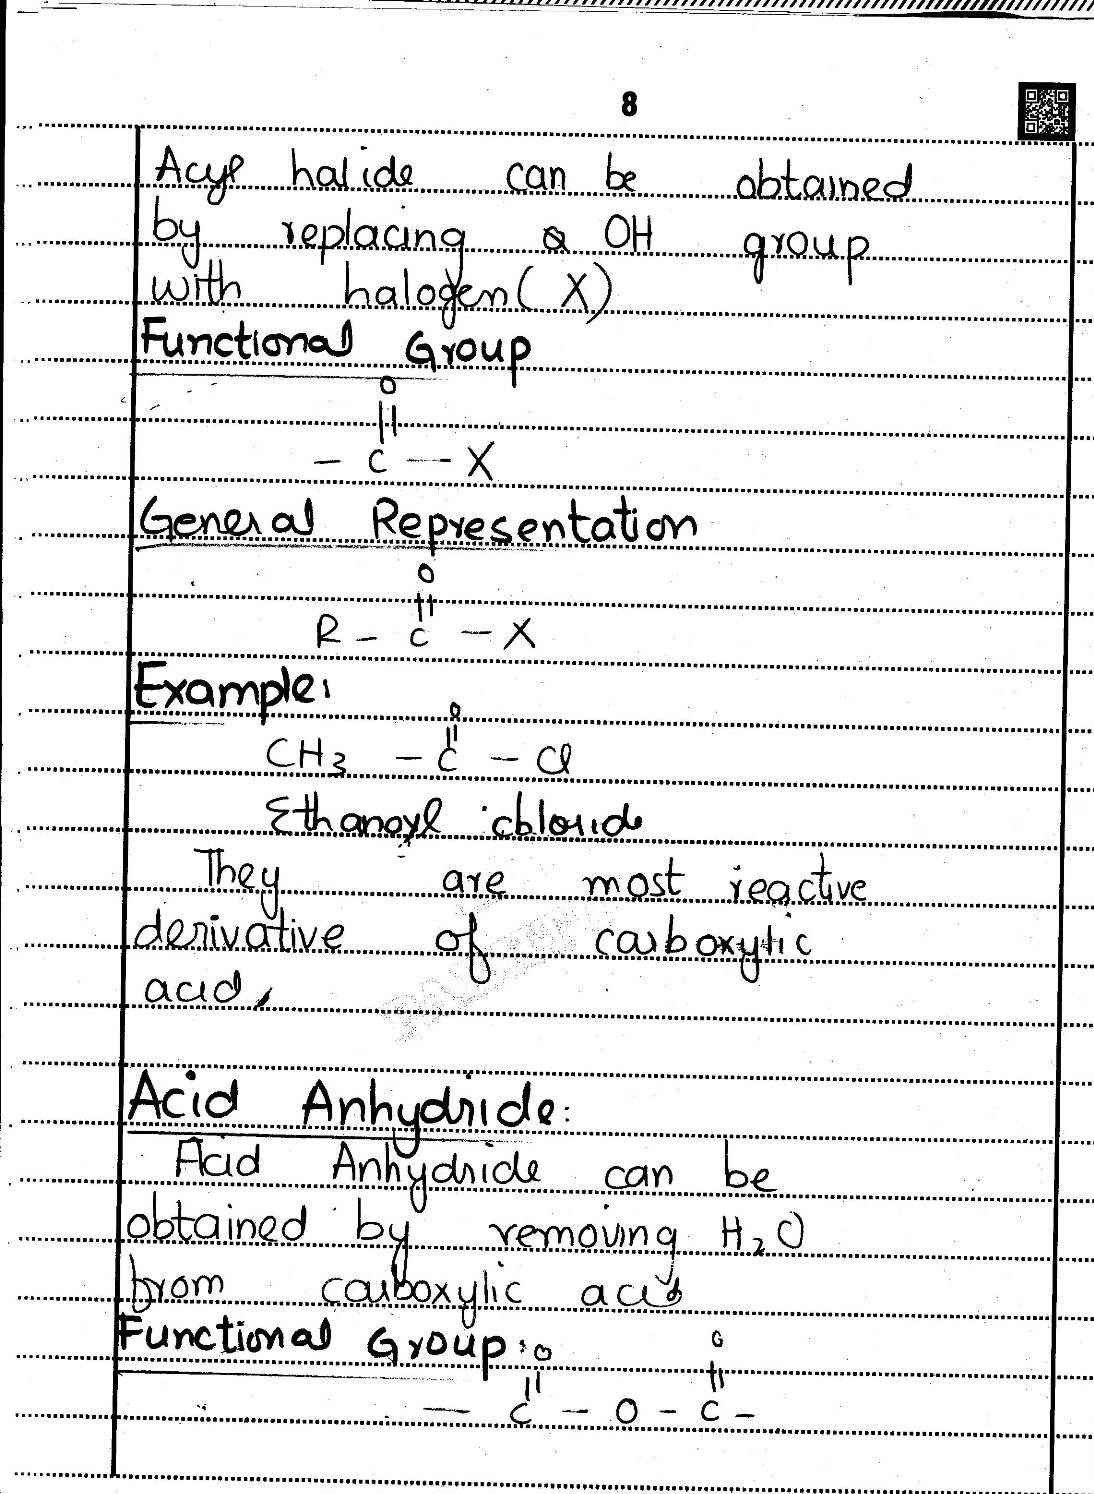 8
Acyl halide can be obtained
by replacing a OH group
with halogen(X)
Functional Group
O
||
- C - X
General Representation
O
||
R - C - X
Example:
O
||
CH3 - C - Cl
Ethanoyl chloride
They are most reactive
derivative of carboxylic
acid.
Acid Anhydride:
Acid Anhydride can be
obtained by removing H2O
from carboxylic acid
Functional Group: O O
|| ||
- C - O - C -